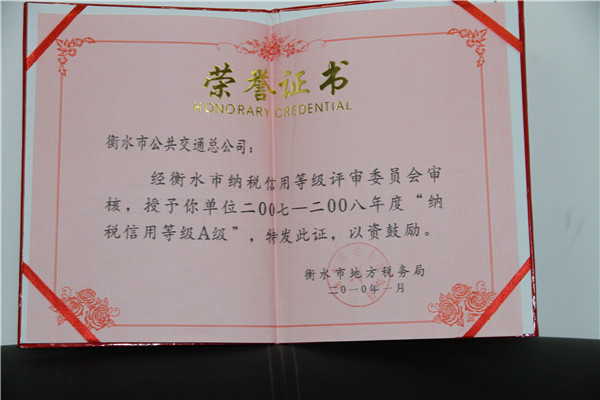 荣誉证书
HONORARY CREDENTIAL
衡水市公共交通总公司：
经衡水市纳税信用等级评审委员会审
核，授予你单位二00七—二00八年度“纳
税信用等级A级”，特发此证，以资鼓励。
衡水市地方税务局
二0一0年一月